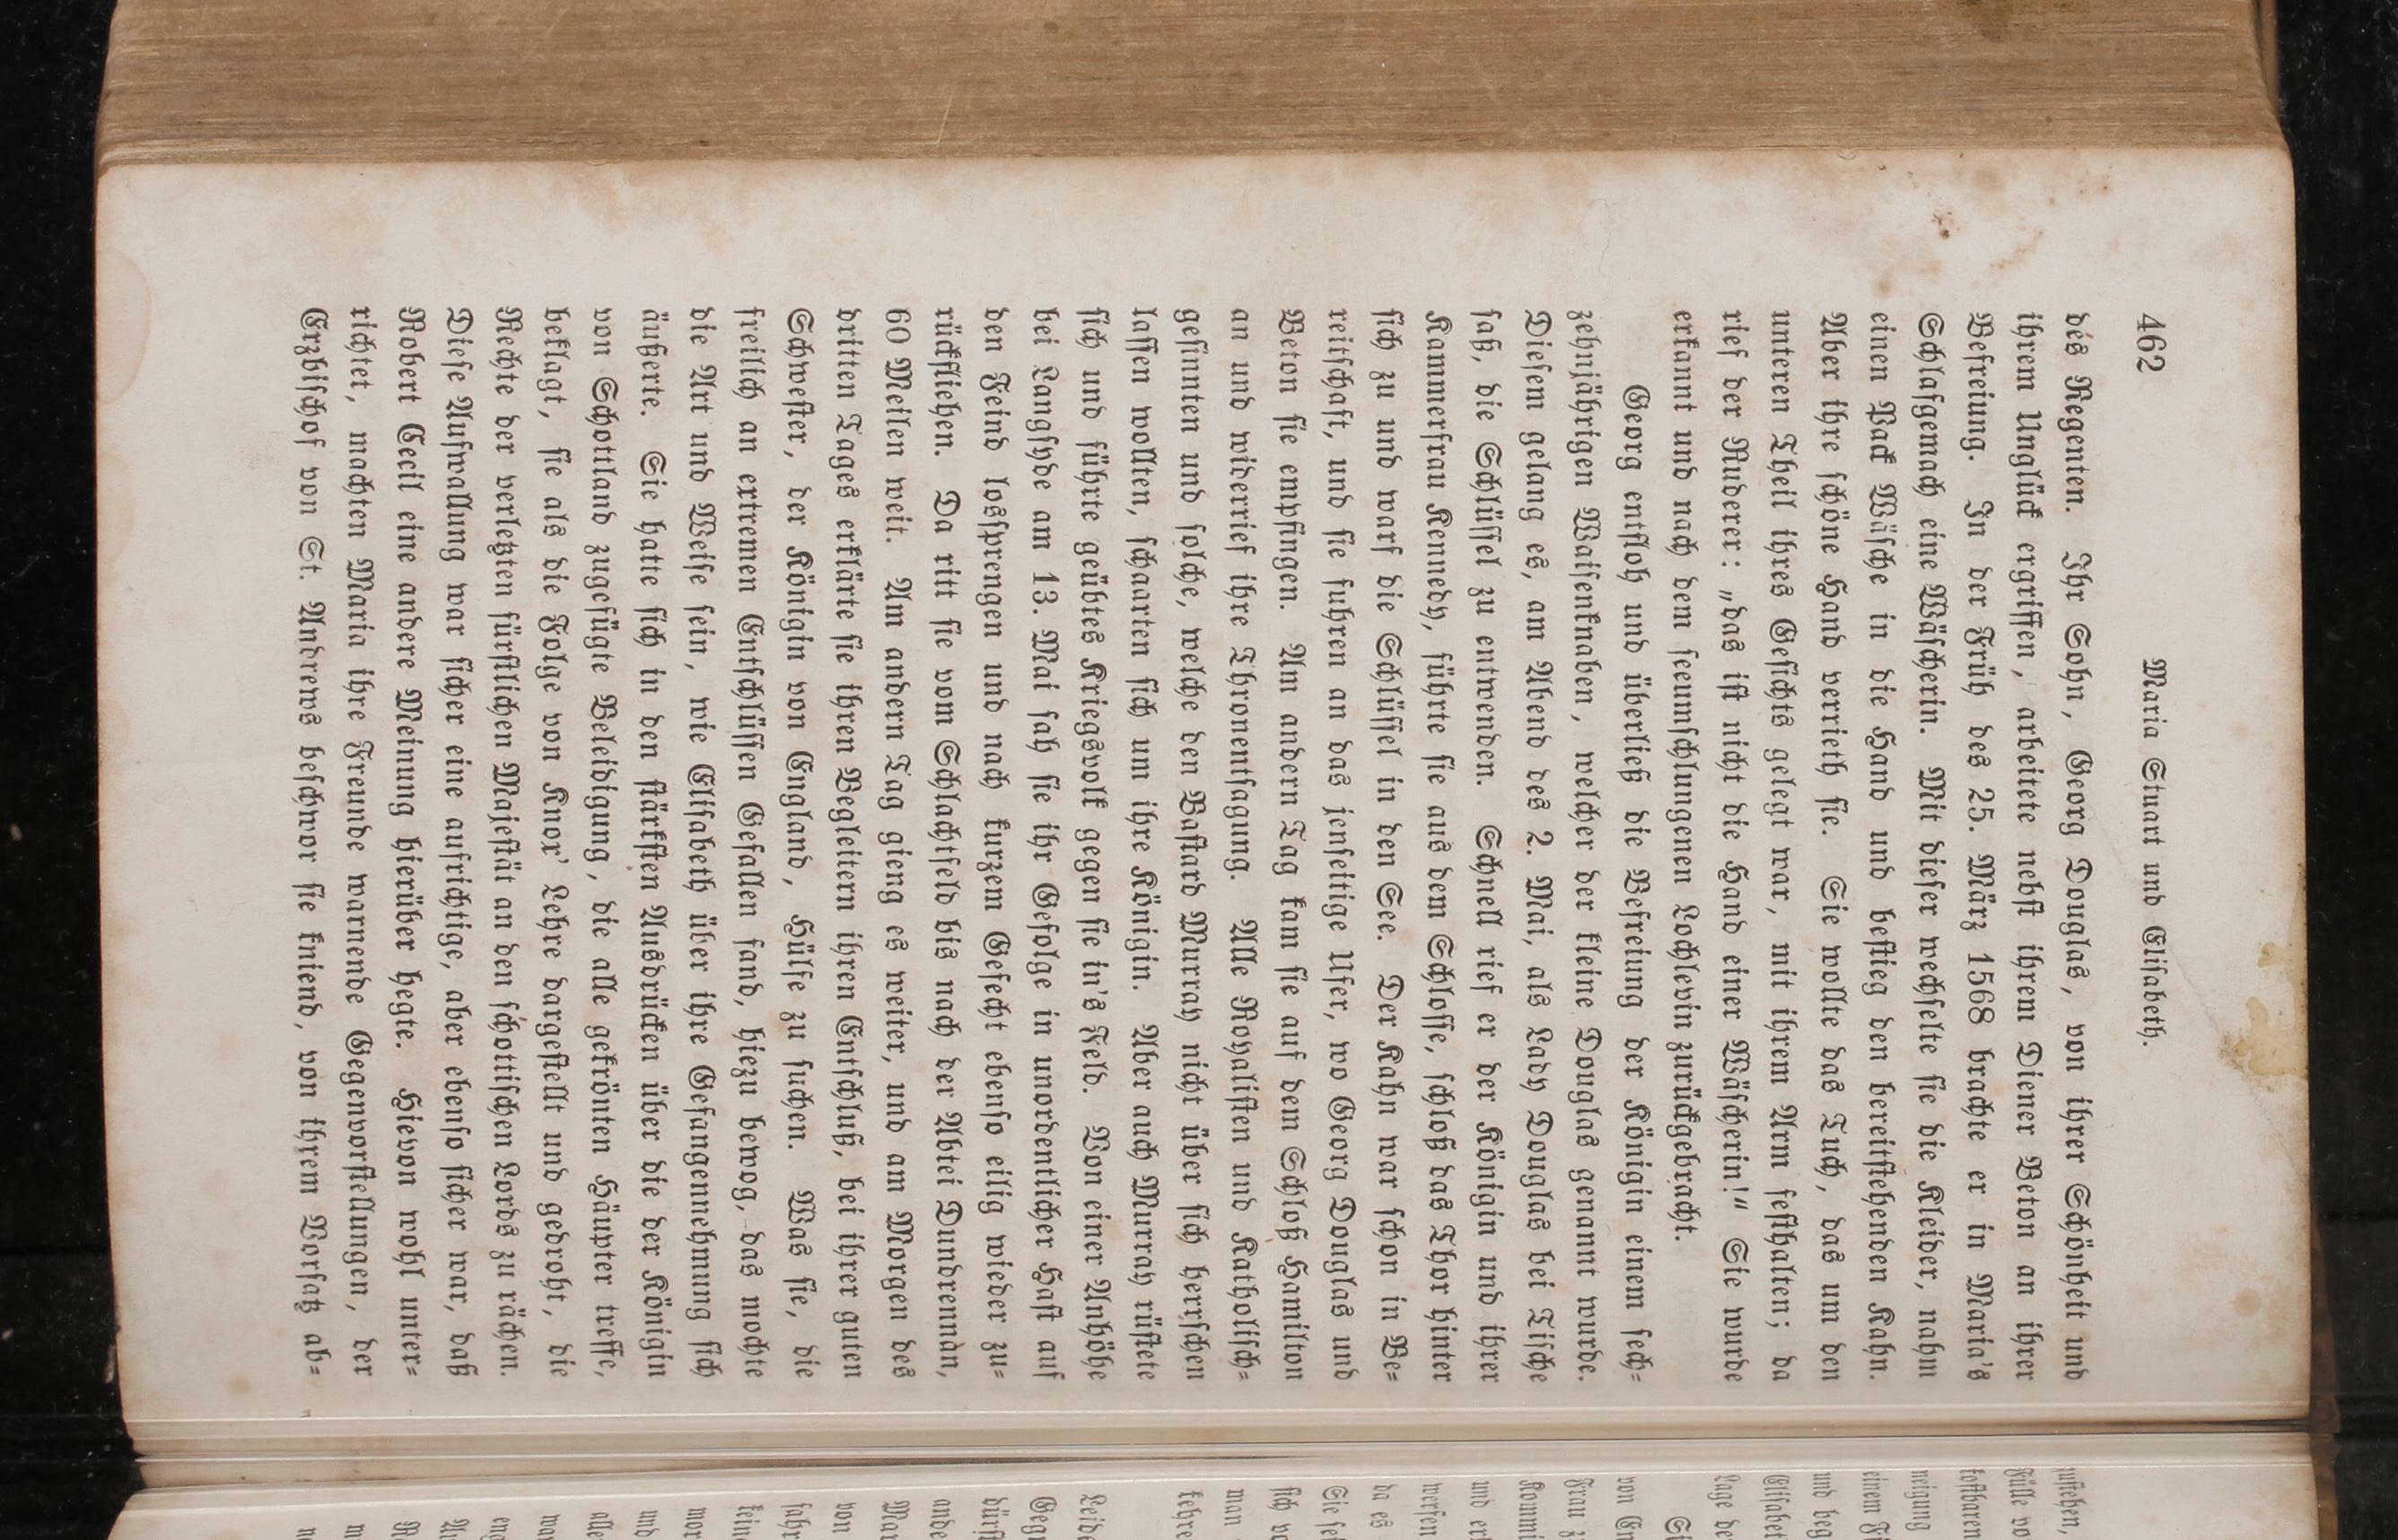 462 Maria Stuart und Elisabeth.
des Regenten. Ihr Sohn, Georg Douglas, von ihrer Schönheit und
ihrem Unglück ergriffen, arbeitete nebst ihrem Diener Beton an ihrer
Befreiung. In der Früh des 25. März 1568 brachte er in Maria's
Schlafgemach eine Wäscherin. Mit dieser wechselte sie die Kleider, nahm
einen Pack Wäsche in die Hand und bestieg den bereitstehenden Kahn.
Aber ihre schöne Hand verrieth sie. Sie wollte das Tuch, das um den
unteren Theil ihres Gesichts gelegt war, mit ihrem Arm festhalten; da
rief der Ruderer: „das ist nicht die Hand einer Wäscherin!“ Sie wurde
erkannt und nach dem seeumschlungenen Lochlevin zurückgebracht.
Georg entfloh und überließ die Befreiung der Königin einem sech-
zehnjährigen Waisenknaben, welcher der kleine Douglas genannt wurde.
Diesem gelang es, am Abend des 2. Mai, als Lady Douglas bei Tische
saß, die Schlüssel zu entwenden. Schnell rief er der Königin und ihrer
Kammerfrau Kennedy, führte sie aus dem Schlosse, schloß das Thor hinter
sich zu und warf die Schlüssel in den See. Der Kahn war schon in Be-
reitschaft, und sie fuhren an das jenseitige Ufer, wo Georg Douglas und
Beton sie empfingen. Am andern Tag kam sie auf dem Schloß Hamilton
an und widerrief ihre Thronentsagung. Alle Royalisten und Katholisch-
gesinnten und solche, welche den Bastard Murray nicht über sich herrschen
lassen wollten, schaarten sich um ihre Königin. Aber auch Murray rüstete
sich und führte geübtes Kriegsvolk gegen sie in's Feld. Von einer Anhöhe
bei Langsyde am 13. Mai sah sie ihr Gefolge in unordentlicher Hast auf
den Feind lossprengen und nach kurzem Gefecht ebenso eilig wieder zu-
rückfliehen. Da ritt sie vom Schlachtfeld bis nach der Abtei Dundrennan,
60 Meilen weit. Am andern Tag gieng es weiter, und am Morgen des
dritten Tages erklärte sie ihren Begleitern ihren Entschluß, bei ihrer guten
Schwester, der Königin von England, Hülfe zu suchen. Was sie, die
freilich an extremen Entschlüssen Gefallen fand, hiezu bewog, das mochte
die Art und Weise sein, wie Elisabeth über ihre Gefangennehmung sich
äußerte. Sie hatte sich in den stärksten Ausdrücken über die der Königin
von Schottland zugefügte Beleidigung, die alle gekrönten Häupter treffe,
beklagt, sie als die Folge von Knox' Lehre dargestellt und gedroht, die
Rechte der verletzten fürstlichen Majestät an den schottischen Lords zu rächen.
Diese Aufwallung war sicher eine aufrichtige, aber ebenso sicher war, daß
Robert Cecil eine andere Meinung hierüber hegte. Hievon wohl unter-
richtet, machten Maria ihre Freunde warnende Gegenvorstellungen, der
Erzbischof von St. Andrews beschwor sie kniend, von ihrem Vorsatz ab-